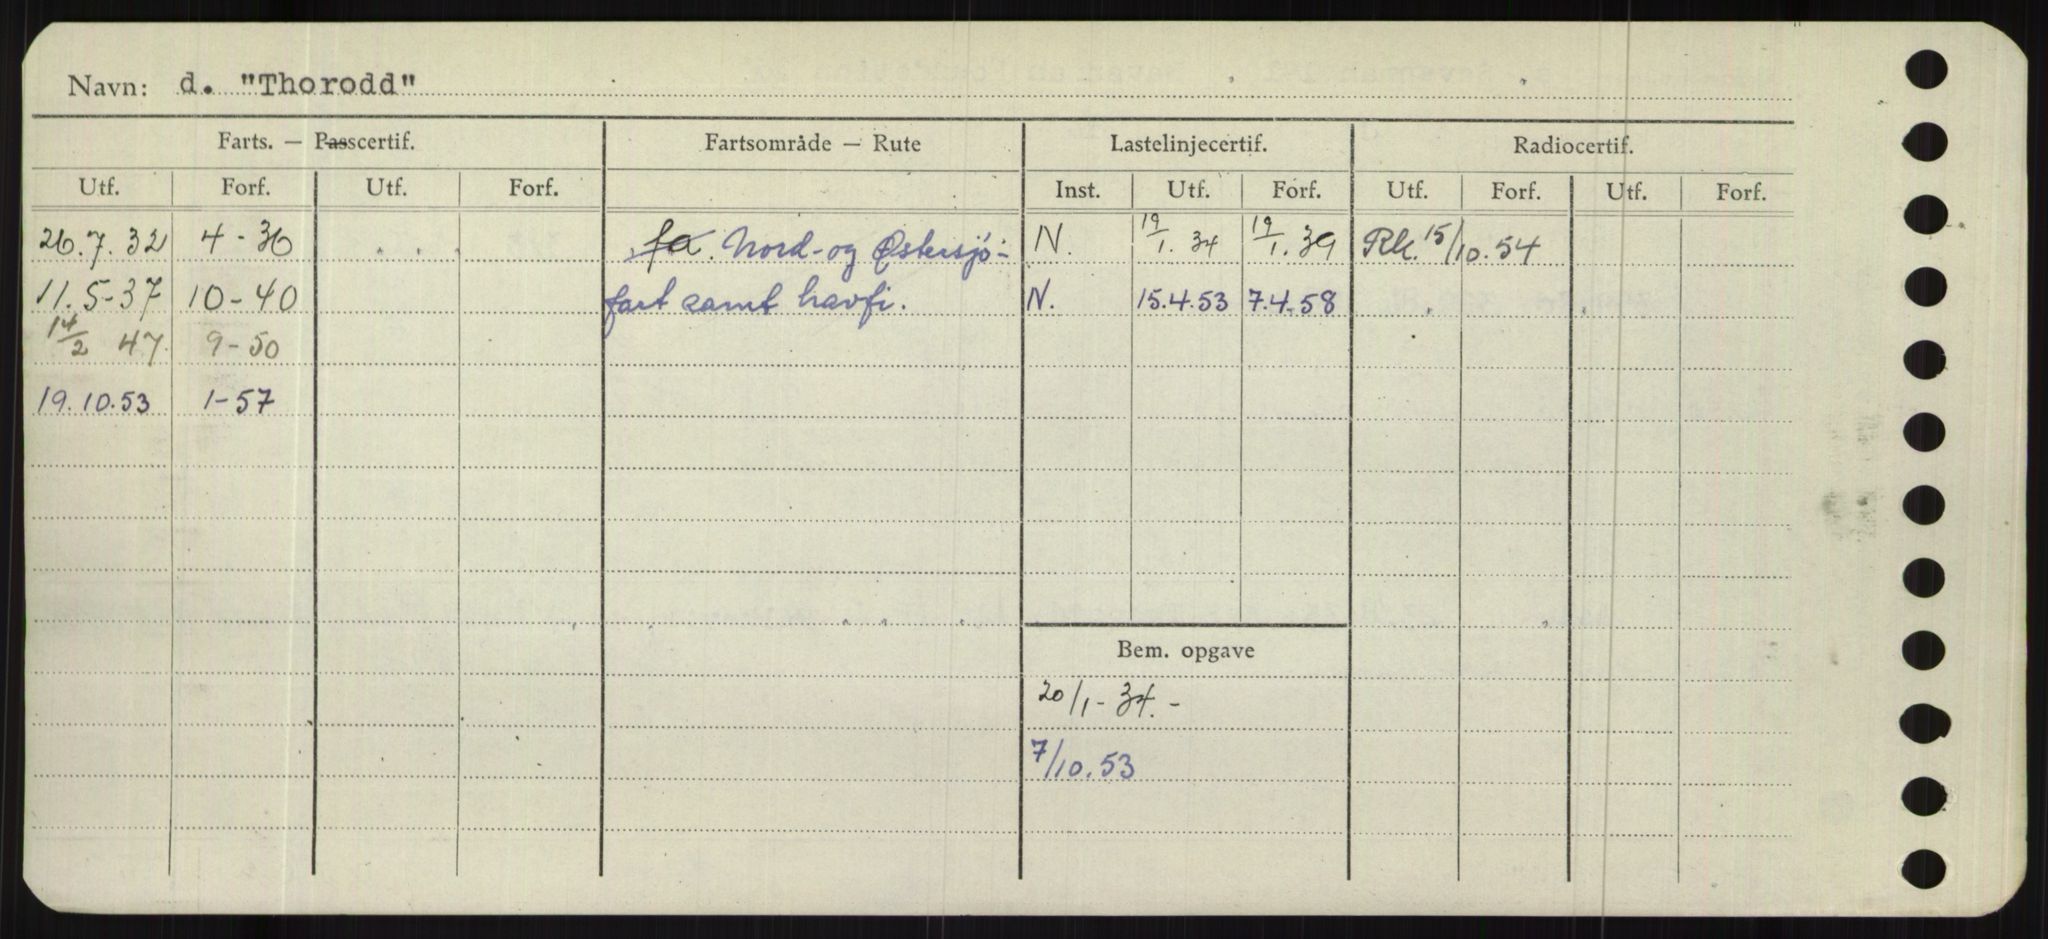 Navn: d. "Thorodd"
Farts. — Passcertif. Fartsområde — Rute Lastelinjecertif. Radiocertif.
Utf. Forf. Utf. Forf. Inst. Utf. Forf. Utf. Forf. Utf. Forf.
26.7.32 4-36 fa. Nord- og Østersjö- N. 19/1. 34 19/1. 39 Rk. 15/10.54
11.5-37 10-40 fart samt havfi. N. 15.4.53 7.4.58
14/2 47 9-50
19.10.53 1-57
Bem. opgave
20/1-34.-
7/10.53